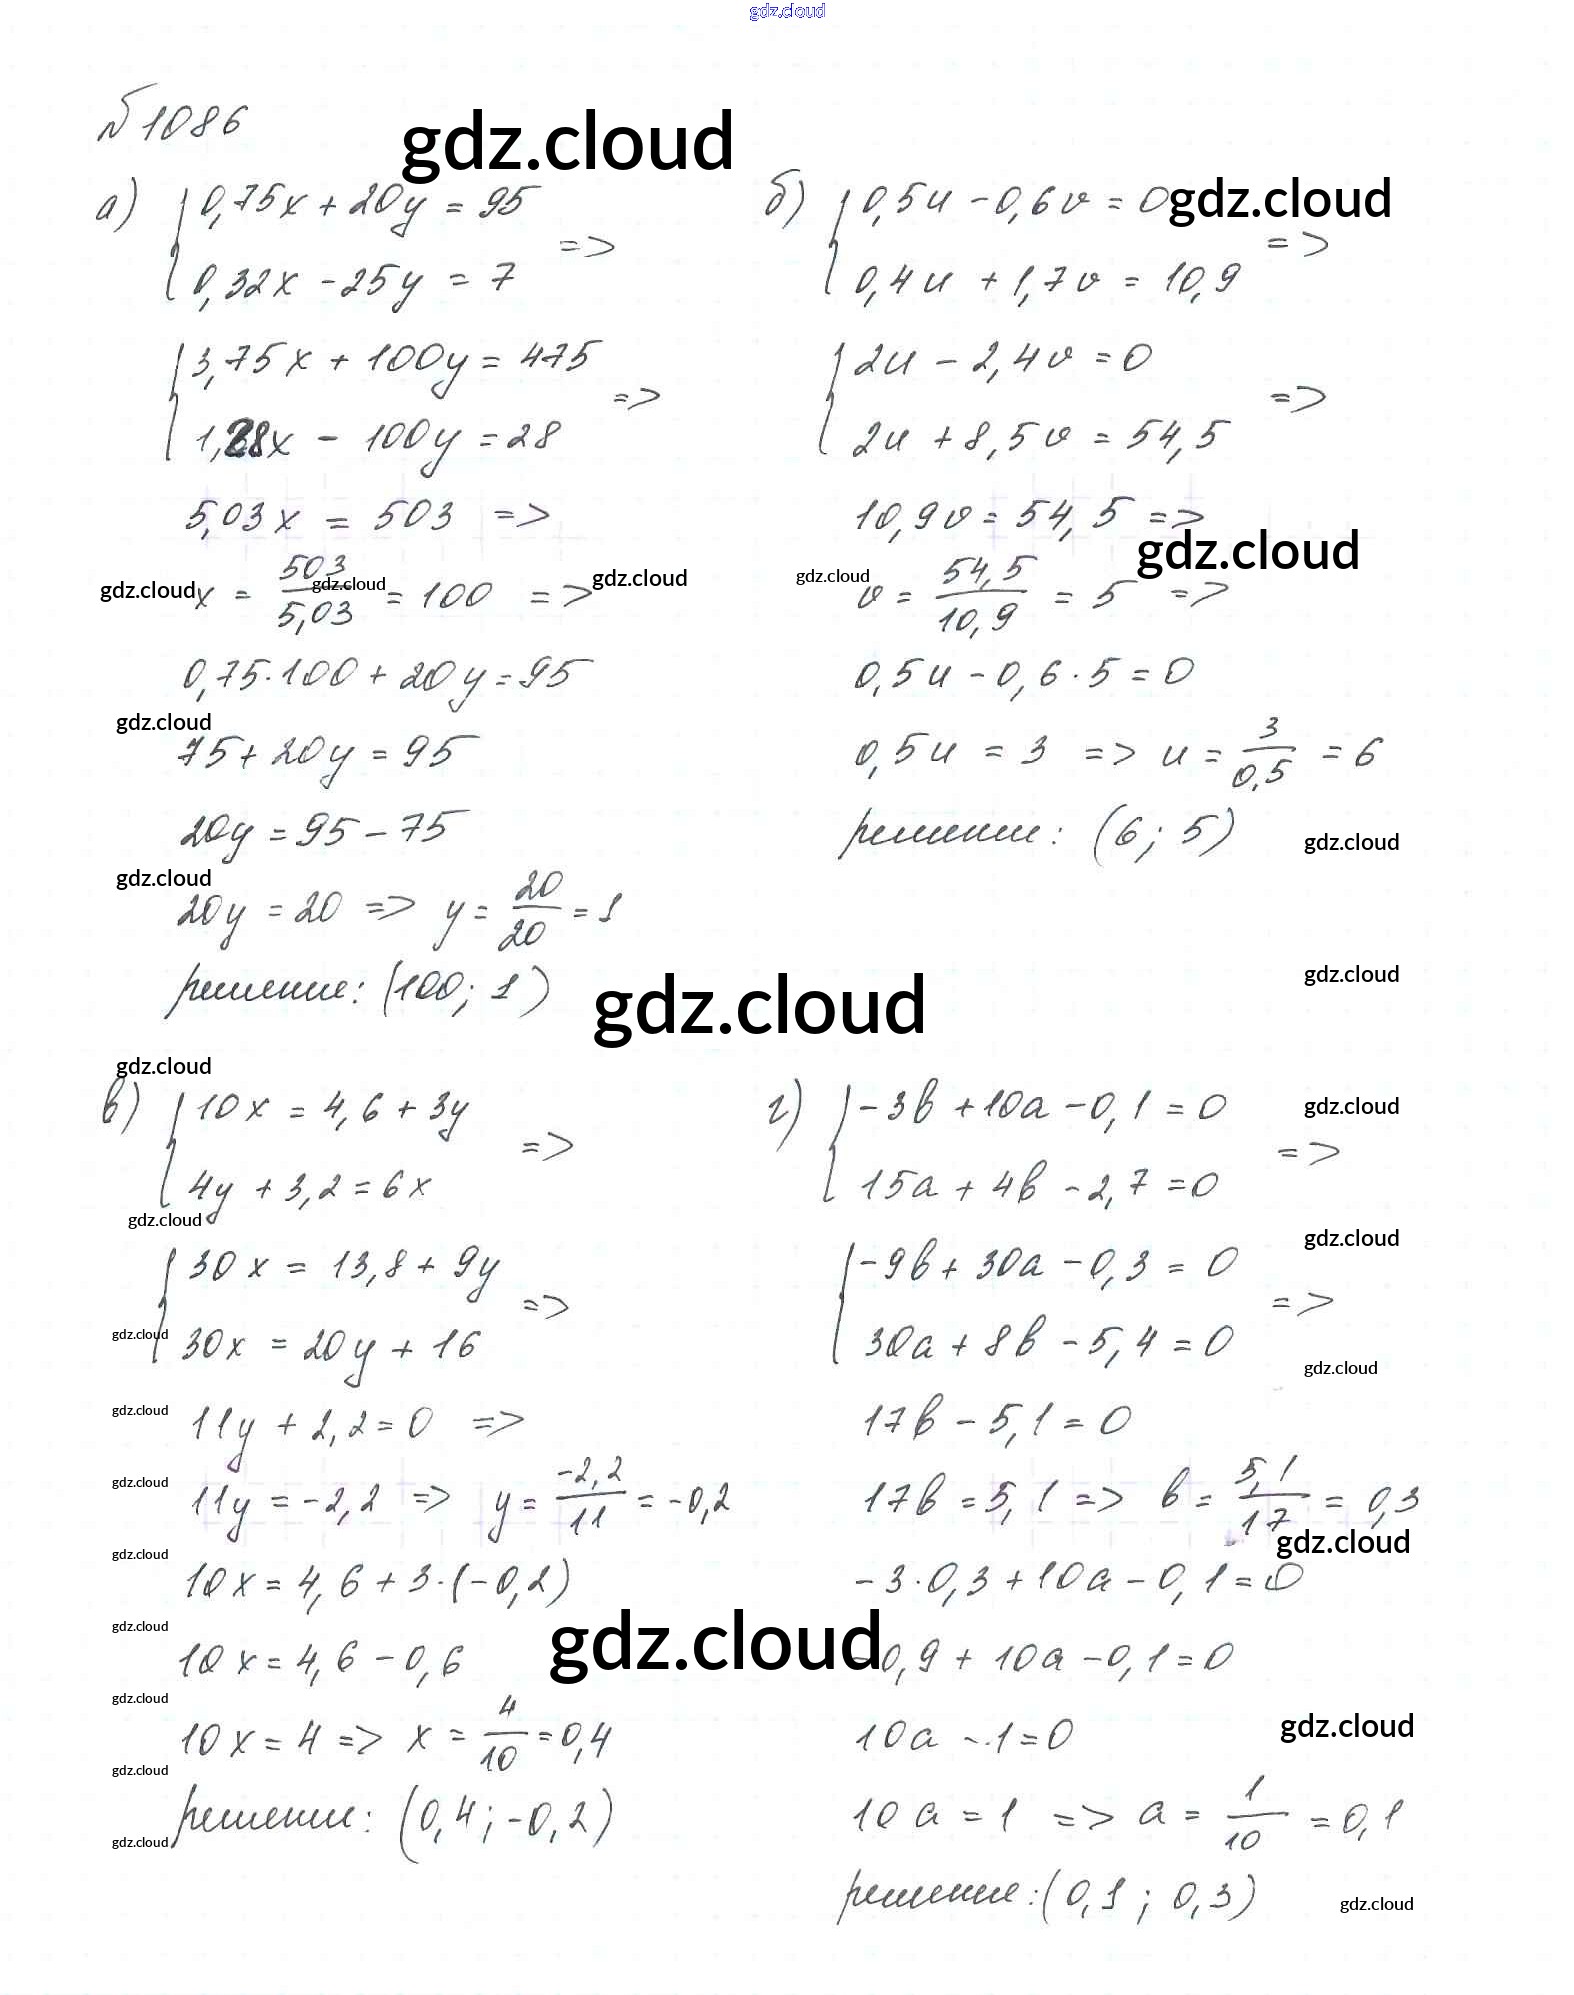 gdz.cloud
№1086
gdz.cloud
а) 0,75x + 20y = 95
0,32x - 25y = 7 =>
3,75x + 100y = 475
1,28x - 100y = 28 =>
5,03x = 503 =>
gdz.cloud x = 503/5,03 = 100 => gdz.cloud gdz.cloud
0,75·100 + 20y = 95
gdz.cloud
75 + 20y = 95
20y = 95 - 75
gdz.cloud
20y = 20 => y = 20/20 = 1
решение: (100; 1)
б) 0,5u - 0,6v = 0 gdz.cloud
0,4u + 1,7v = 10,9 =>
2u - 2,4v = 0
2u + 8,5v = 54,5 =>
10,9v = 54,5 =>
gdz.cloud
gdz.cloud
v = 54,5/10,9 = 5 =>
0,5u - 0,6·5 = 0
0,5u = 3 => u = 3/0,5 = 6
решение: (6; 5) gdz.cloud
gdz.cloud
gdz.cloud
gdz.cloud
в) 10x = 4,6 + 3y
4y + 3,2 = 6x =>
gdz.cloud
30x = 13,8 + 9y
30x = 20y + 16 =>
gdz.cloud
gdz.cloud
11y + 2,2 = 0 =>
gdz.cloud
11y = -2,2 => y = -2,2/11 = -0,2
gdz.cloud
10x = 4,6 + 3·(-0,2)
gdz.cloud
10x = 4,6 - 0,6
gdz.cloud
gdz.cloud
10x = 4 => x = 4/10 = 0,4
gdz.cloud
решение: (0,4; -0,2)
gdz.cloud
г) -3b + 10a - 0,1 = 0 gdz.cloud
15a + 4b - 2,7 = 0 =>
gdz.cloud
-9b + 30a - 0,3 = 0
30a + 8b - 5,4 = 0 =>
gdz.cloud
17b - 5,1 = 0
17b = 5,1 => b = 5,1/17 = 0,3
gdz.cloud
-3·0,3 + 10a - 0,1 = 0
-0,9 + 10a - 0,1 = 0
10a - 1 = 0 gdz.cloud
10a = 1 => a = 1/10 = 0,1
решение: (0,1; 0,3) gdz.cloud